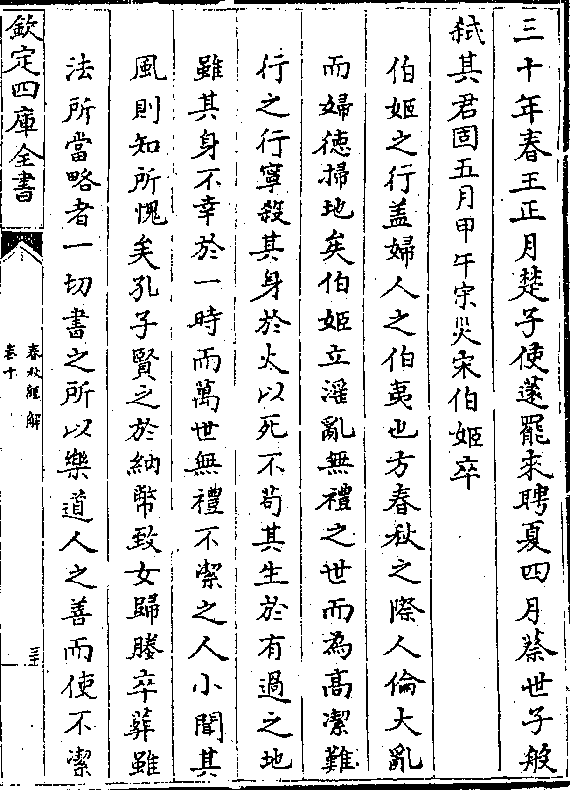 三十年春王正月楚子使薳罷來聘夏四月蔡世子般
弑其君固五月甲午宋災宋伯姬卒
伯姬之行盖婦人之伯夷也方春秋之際人倫大亂
而婦徳掃地矣伯姬立滛亂無禮之世而為髙潔難
行之行寧殺其身於火以死不苟其生於有過之地
雖其身不幸於一時而萬世無禮不潔之人小聞其
風則知所愧矣孔子賢之於納幣致女歸媵卒葬雖
法所當略者一切書之所以樂道人之善而使不潔
欽定四庫全書
春秋經解
卷十
三十